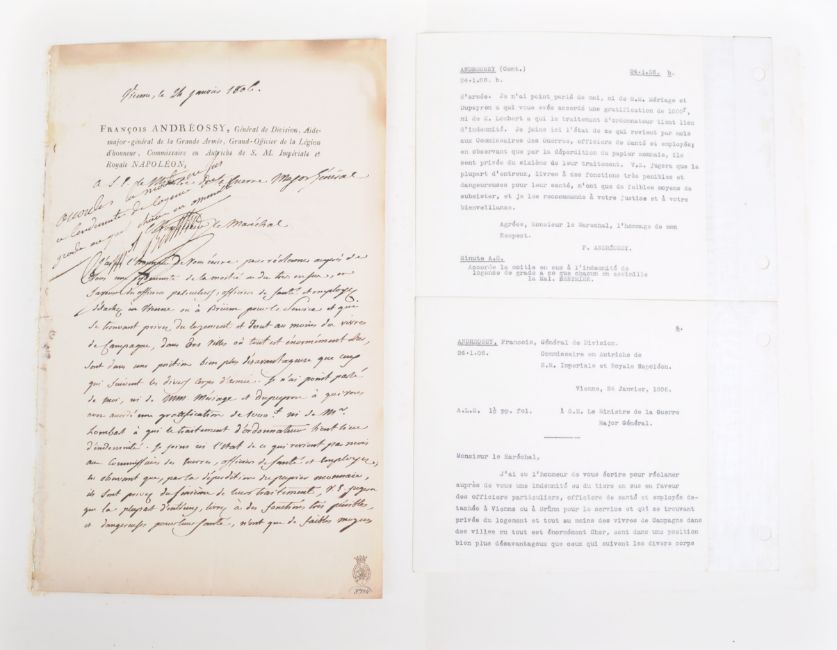 Vienne, le 24 janvier 1806.
FRANÇOIS ANDRÉOSSY, Général de Division, Aide-
major-général de la Grande Armée, Grand-Officier de la Légion
d'honneur, Commissaire en Autriche de S. M. Impériale et
Royale NAPOLÉON,
A S. E. le Ministre de la Guerre Major Général
Monsieur le Maréchal
J'ai eu l'honneur de vous écrire pour réclamer auprès de
vous une indemnité de la moitié ou du tiers en sus, en
faveur des officiers particuliers, officiers de santé et employés
détachés à Vienne ou à Brünn pour le service et qui
se trouvant privés du logement et tout au moins des vivres
de Campagne, dans des villes où tout est énormément cher,
sont dans une position bien plus désavantageuse que ceux
qui suivent les divers corps d'armée. Je n'ai point parlé
de moi, ni de MM. Mériage et Dupeyron à qui vous
avez accordé une gratification de 1000 f. ni de Mr.
Lombart à qui le traitement d'ordonnateur tient lieu
d'indemnité. Je joins ici l'état de ce qui revient par mois
aux Commissaires des Guerres, officiers de santé et employés,
en observant que, par la déperdition du papier monnaie,
ils sont privés du sixième de leur traitement. V. E. jugera
que la plupart d'entr'eux, livrés à des fonctions très pénibles
et dangereuses pour leur santé, n'ont que de faibles moyens
ANDREOSSY (Cont.) 24-1.06. b.
24-1.06. b.
d'armée. Je n'ai point parlé de moi, ni de M.M. Mériage et
Dupeyron a qui vous avez accordé une gratification de 1000f,
ni de M. Lombart a qui le traitement d'ordonnateur tient lieu
d'indemnité. Je joins ici l'état de ce qui revient par mois
aux Commissaires des Guerres, officiers de santé et employés;
en observant que par la déperdition du papier monnaie, ils
sont privés du sixième de leur traitement. V.E. jugera que la
plupart d'entreux, livrés à des fonctions très penibles et
dangereuses pour leur santé, n'ont que de faibles moyens de
subsister, et je les recommande à votre justice et à votre
bienveillance.
Agréez, Monsieur le Marechal, l'hommage de mon
Respect.
F. ANDRÉOSSY.
Minute A.S.
Accorde la moitié en sus à l'indemnité de
logement de grade a ce que chacun en
le Mal. BERTHIER.
a.
ANDREOSSY, Francois, Général de Division.
24-1.06. Commissaire en Autriche de
S.M. Imperiale et Royale Napoléon.
Vienne, 24 Janvier, 1806.
A.L.S. 1½ pp. fol. à S.E. Le Ministre de la Guerre
Major Général.
Monsieur le Maréchal,
J'ai eu l'honneur de vous écrire pour réclamer
auprès de vous une indemnité ou du tiers en sus en faveur
des officiers particuliers, officiers de santé et employés de-
tachés à Vienne ou à Brünn pour le service et qui se trouvant
privés du logement et tout au moins des vivres de Campagne dans
des villes ou tout est énormément Cher, sont dans une position
bien plus désavantageux que ceux qui suivent les divers corps